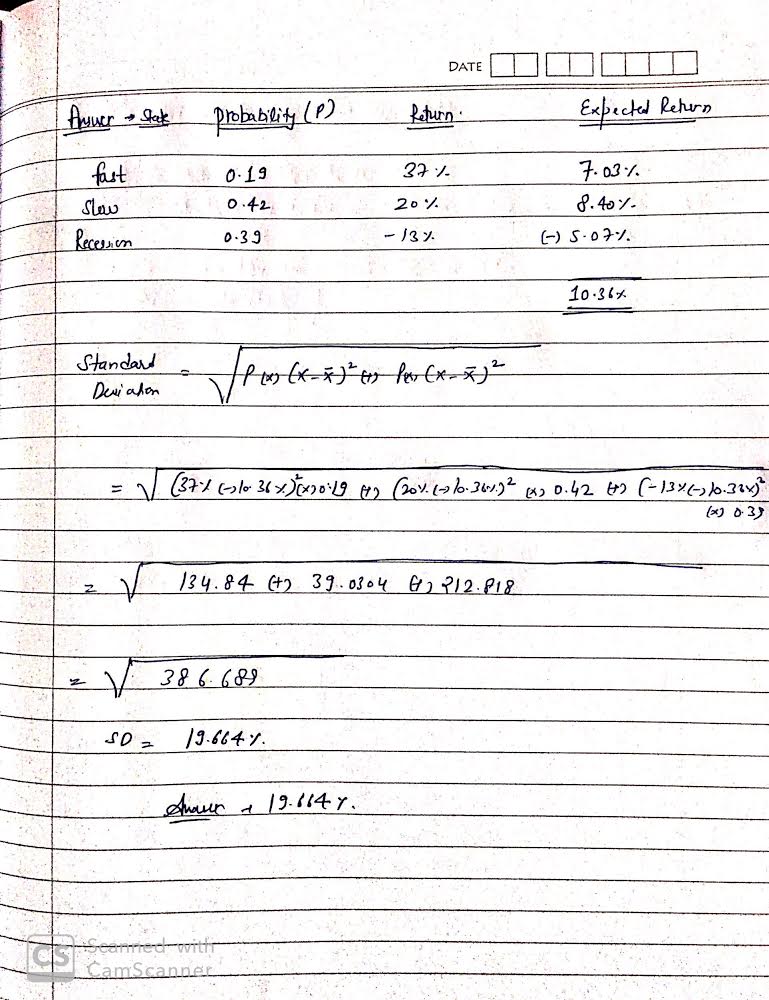 DATE
Answer → State Probability (P) Return. Expected Return
fast 0.19 37% 7.03%
Slow 0.42 20% 8.40%
Recession 0.39 -13% (-) 5.07%
10.36%
Standard Deviation = √ P(x) (x-x̄)² (+) P(x) (x-x̄)²
= √ (37% (-) 10.36%)² (x) 0.19 (+) (20% (-) 10.36%)² (x) 0.42 (+) (-13% (-) 10.33%)²
(x) 0.39
= √ 134.84 (+) 39.0304 (+) 212.818
= √ 386.689
SD = 19.664%.
Answer → 19.664%.
CS Scanned with
CamScanner